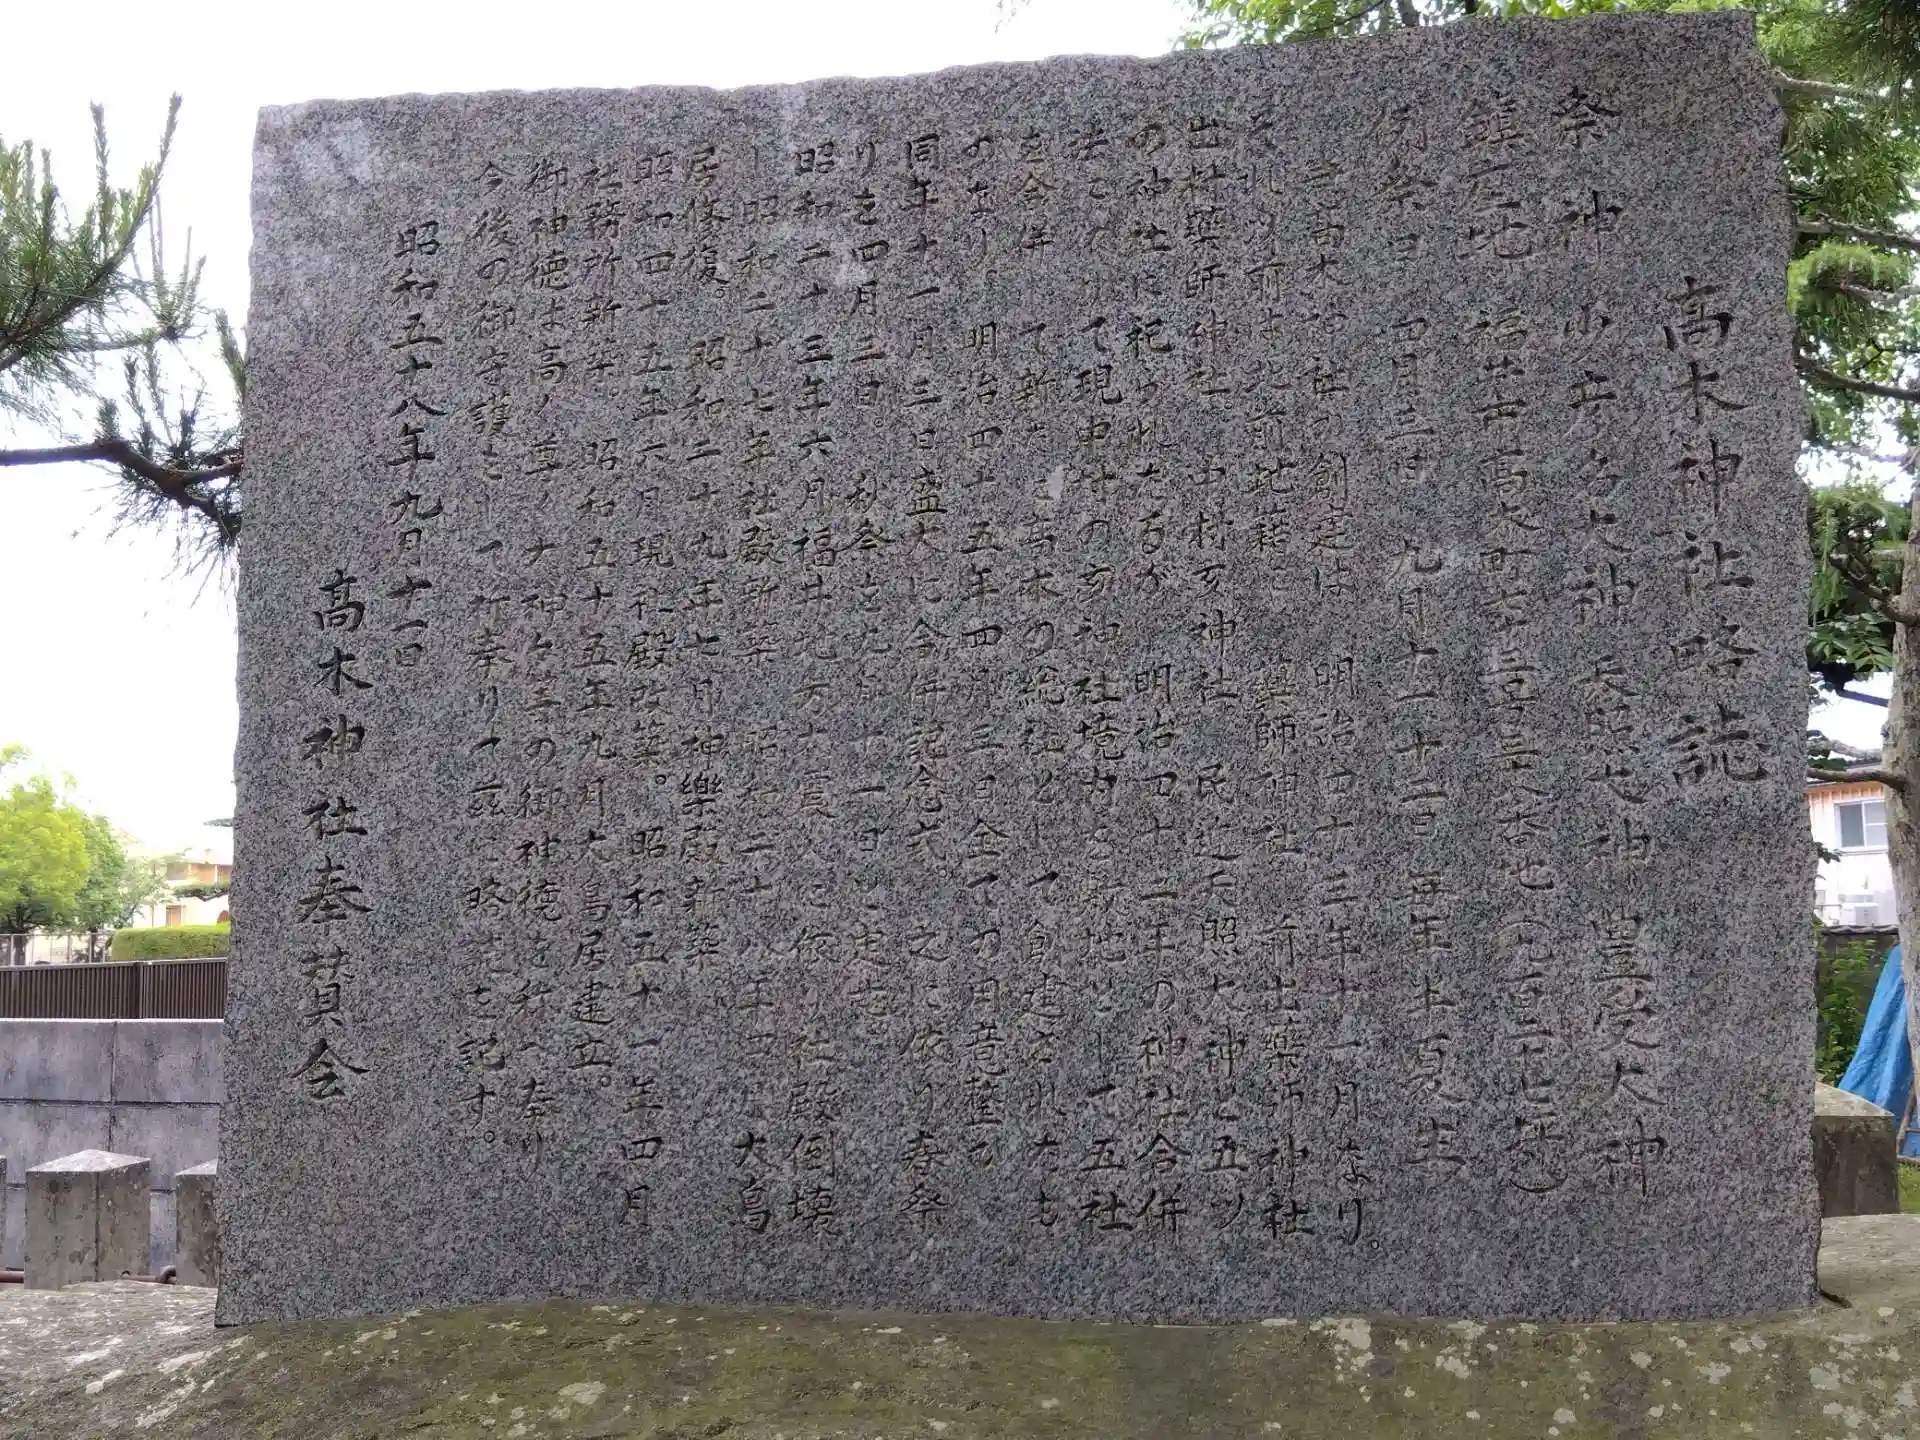 高木神社略誌
祭神 少彦名大神 天照大神 豊受大神
鎮座地 福井市高木町
例祭日 四月三日 九月十一 十二日 毎年上夏主
当高木神社の創建は 明治四十三年十一月なり。
それ以前は北前 薬師神社。 前出薬師神社
出村薬師神社。中村亥神社 民辺天照大神と五ッ
の神社に祀られたるが 明治四十二年の神社合併
法で 現中村の亥神社境内を敷地として五社
を合併して新たに高木の総社として創建されたも
のなり。 明治四十五年四月三日全ての
同年十一月三日盛大に合併記念式。之に依り春祭
りを四月三日。秋祭を九月十一日と定む。
昭和二十三年六月福井地方大震災に依り社殿倒壊
し昭和二十七年社殿新築 昭和二十八年 大鳥
居修復。 昭和二十九年七月神樂殿新築。
昭和四十五年六月現社殿改築。昭和五十一年四月
社務所新築。昭和五十五年九月大鳥居建立。
御神徳は高ノ尊ノ大神 の御神徳を称へ奉り
今後の御守護をして祈奉りて茲に略誌を記す。
昭和五十八年九月十一日
高木神社奉賛会